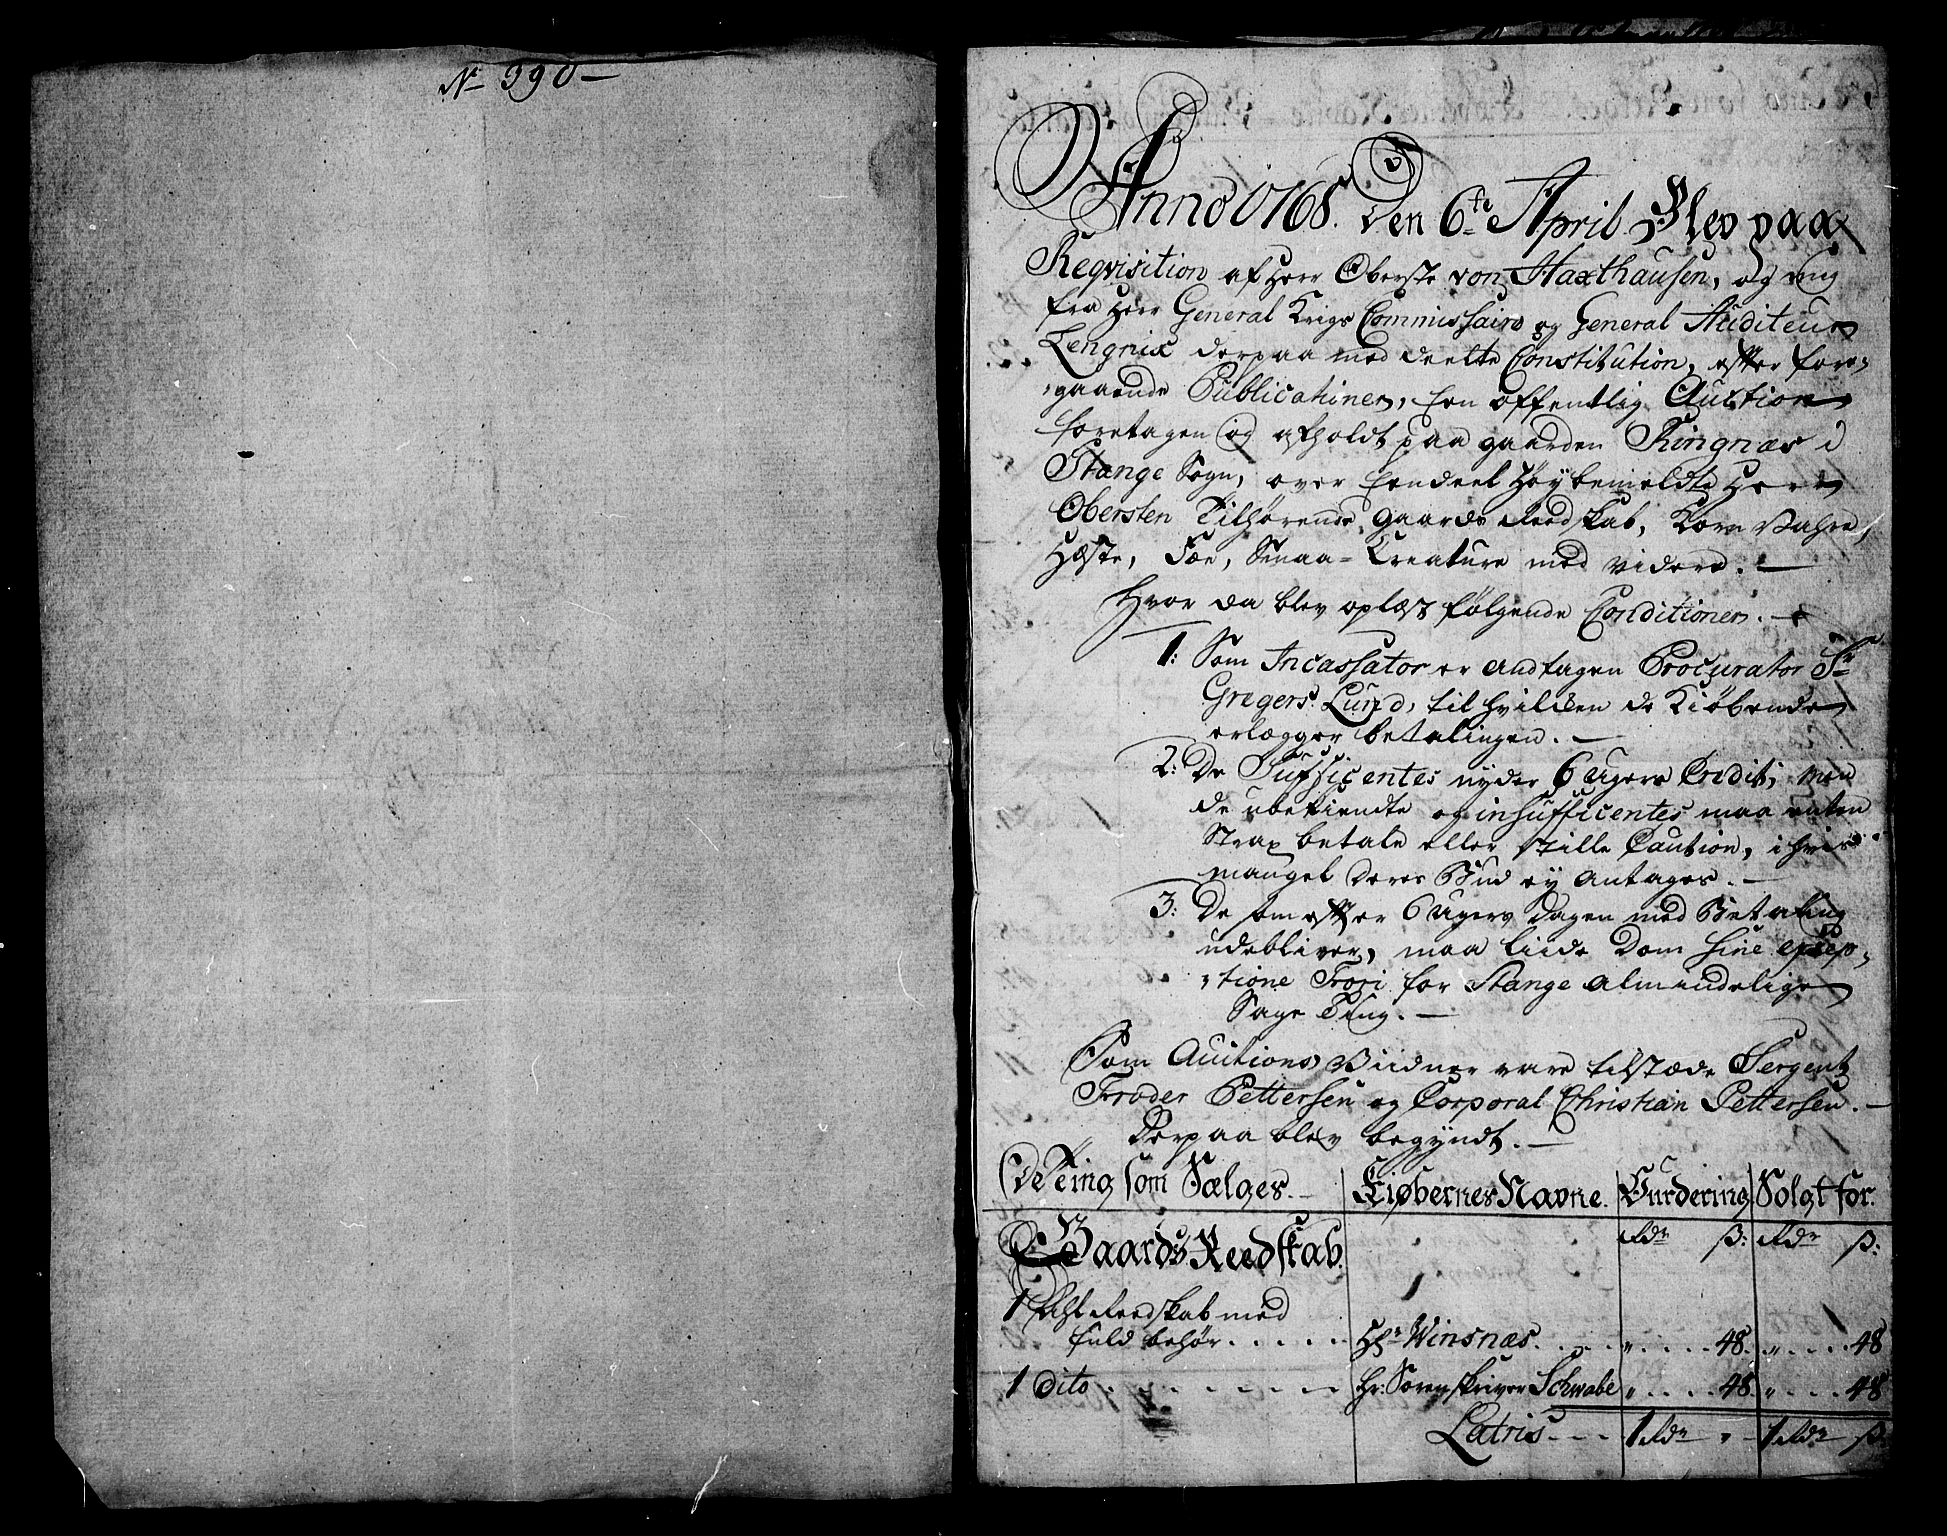 No 390 —
Anno 1768. den 6te April Blev paa
Reqvisition af Herr Oberste von Haxthausen, og
fra Herr General Krigs Commissaire og General Auditeur
Lengnix derpaa med deelte Constitution, efter fore-
gaaende Publicationer, een offentlig Auction
foretagen og afholdt paa gaarden Ringnæs i
Stange Sogn, over eendeel Høybemeldte Herr
Obersten Tilhørende gaards Reedskab, Korn Vahre,
Hæste, Fæe, Smaa-Creature med videre. —
Hvor da blev oplæst følgende Conditioner. —
1: Som Incassator er andtagen Procurator Sr
Gregers Lund, til hvilken de Kiøbende
erlægger betalingen. —
2: De Sufficentes nyder 6 Ugers Credit, men
de ubekiendte og insufficentes maa enten
Strax betale eller stille Caution, i hvis
mangel deres Bud ey antages. —
3: De som efter 6 Ugers dagen med Betaling
udebliver, maa liide Dom sine excep-
tione Fori for Stange almindelige
Sage Ting. —
Som Auctions Viidner vare tilstæde Sergent
Froder Pettersen og Corporal Christian Pettersen. —
Derpaa blev begyndt. —
De Ting som Sælges. — Kiøbernes Navne. Vurdering Solgt for.
Gaards Reedskab. Rdr ß: Rdr ß:
1 Reedskab med
fuld behør . . . . . Hr Winsnæs . . . . " . . . . 48. " . . . . 48
1 dito . . . . . . . Hr: Sorenskriver Schwabe " . . . . 48. " . . . 48
Latris - - - 1 Rdr " - 1 Rdr ß